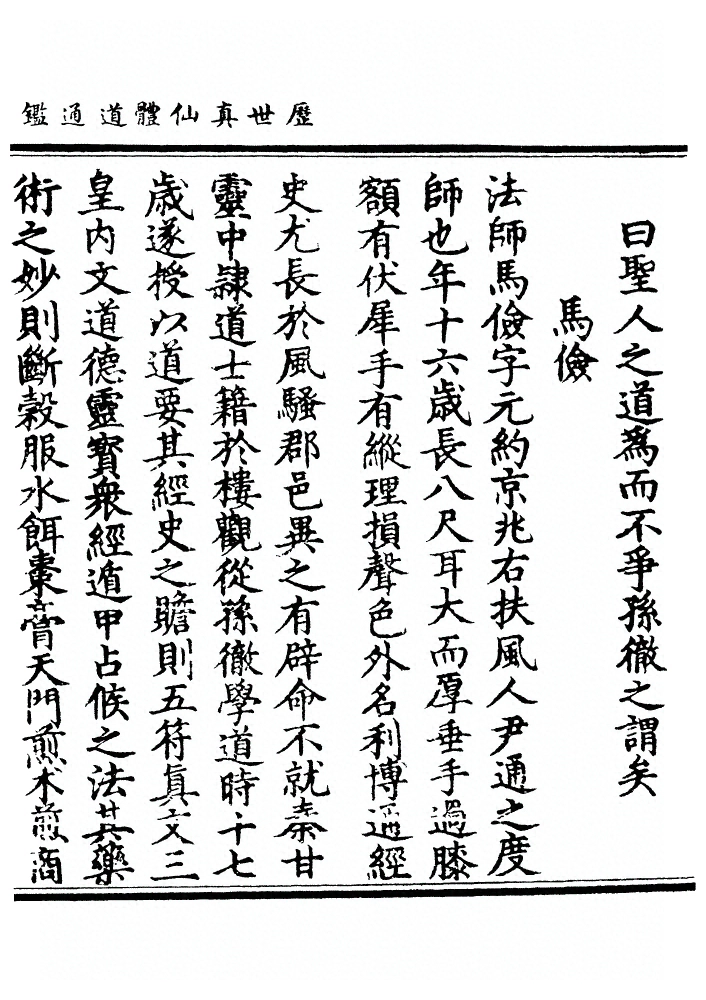 歷世真仙體道通鑑
曰聖人之道爲而不爭孫徹之謂矣
馬儉
法師馬儉字元約京兆右扶風人尹通之度
師也年十六歲長八尺耳大而厚垂手過膝
額有伏犀手有縱理損聲色外名利博通經
史尤長於風騷郡邑異之有辟命不就秦甘
靈中隷道士籍於樓觀從孫徹學道時十七
歲遂授以道要其經史之贍則五符眞文三
皇內文道德靈寶衆經遁甲占候之法其藥
術之妙則斷穀服水餌棗膏天門煎木煎商